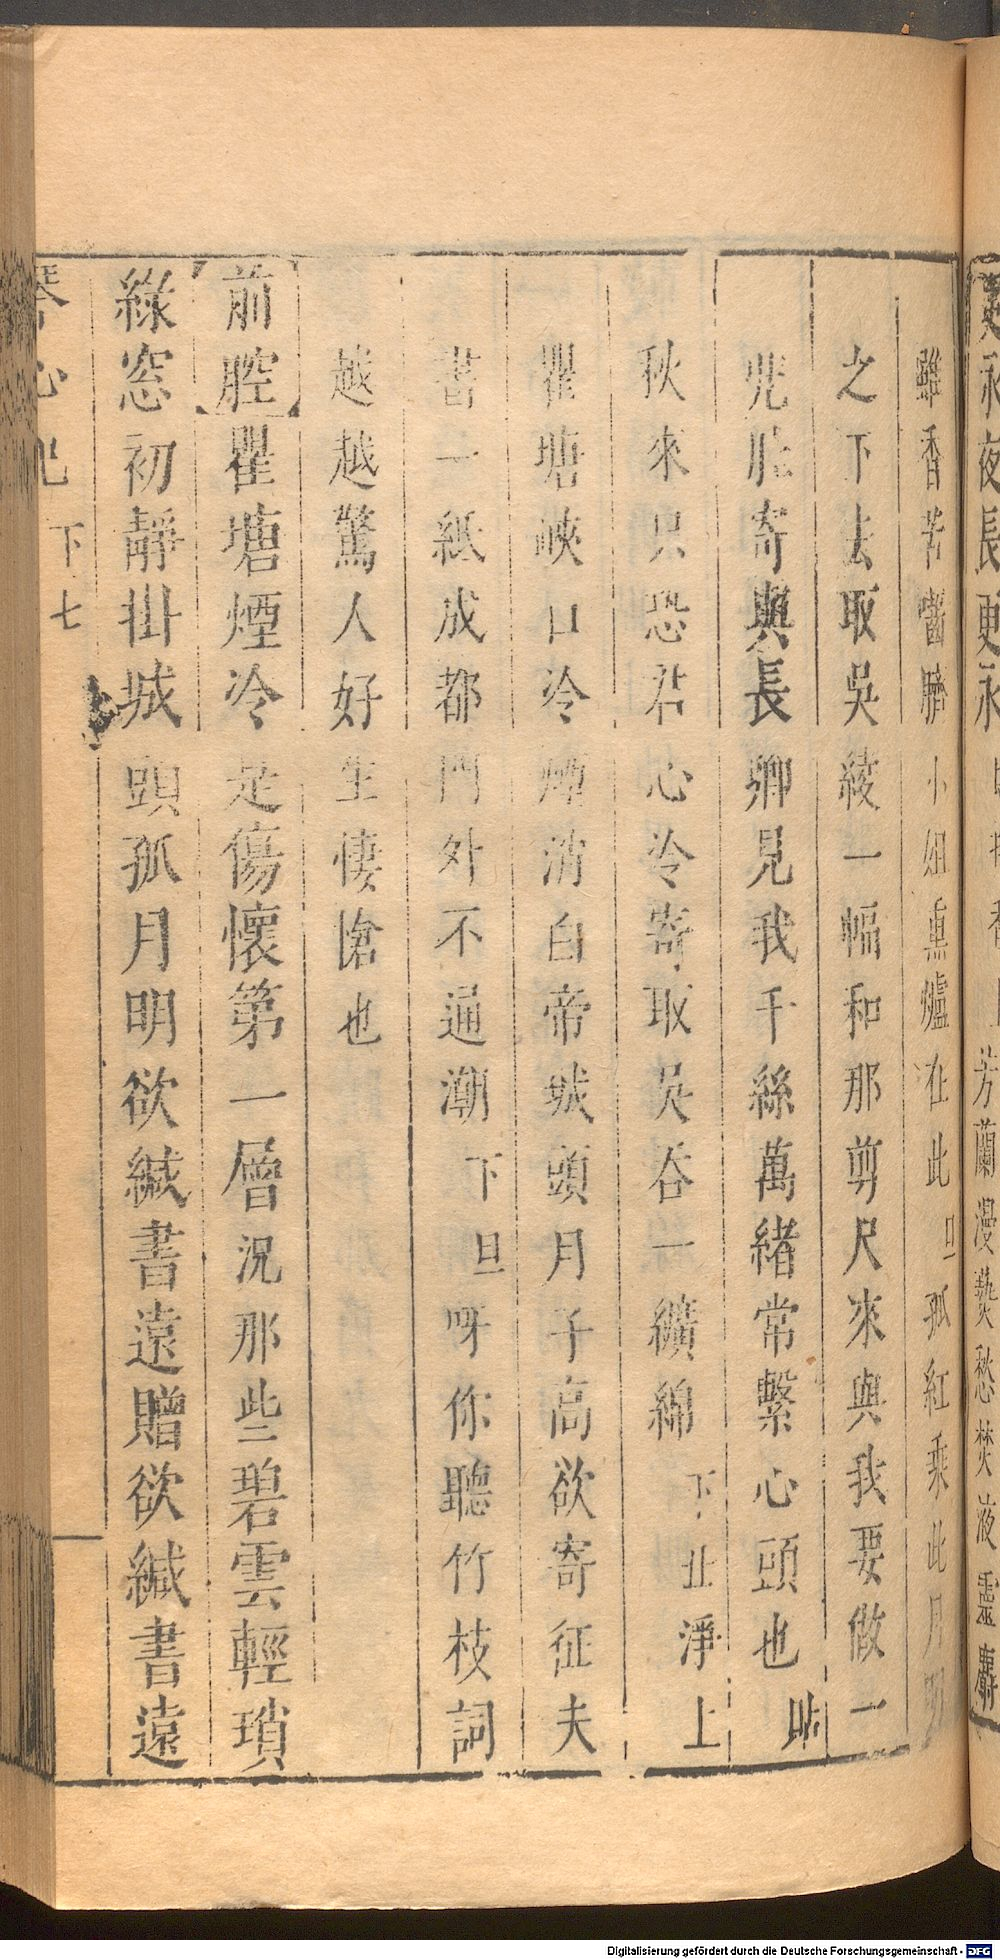 永夜長更永 芳蘭漫爇愁焚液靈麝
雖香苦嚙臍小姐熏爐在此旦孤紅乘此月明
之下去取吳綾一幅和那剪尺來與我要做一
兜肚寄與長卿見我千絲萬緒常繫心頭也貼
秋來只恐君心冷寄取吳吞一纊綿下丑淨上
瞿塘峽口冷煙消白帝城頭月子高欲寄征夫
書一紙成都門外不通潮下旦呀你聽竹枝詞
越越驚人好生悽愴也
前腔瞿塘煙冷是傷懷第一層況那些碧雲輕瑣
綠窓初靜掛城頭孤月明欲緘書遠贈欲緘書遠
琴心記 下 七
Digitalisierung gefördert durch die Deutsche Forschungsgemeinschaft - DFG